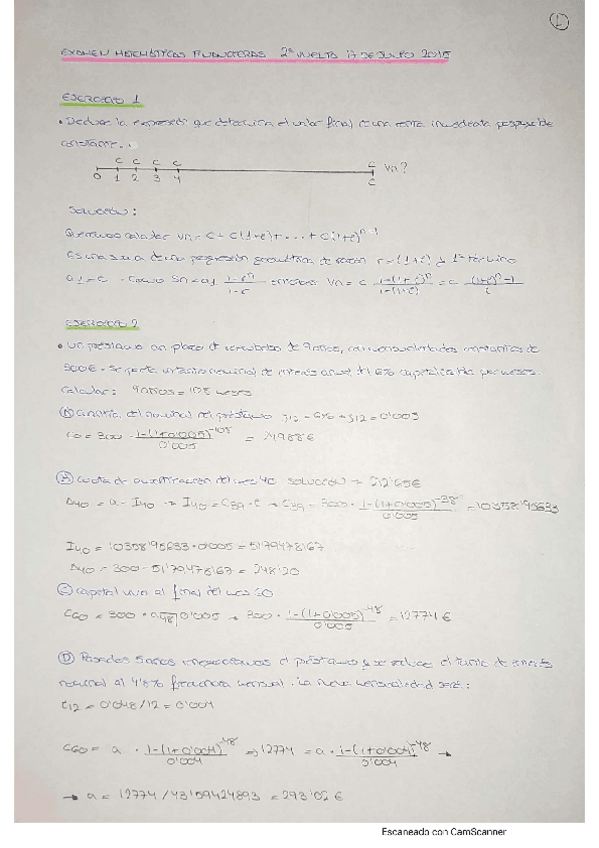 1
EXAMEN MATEMÁTICAS FINANCIERAS 2ª VUELTA 17 DE JULIO 2015
EJERCICIO 1
• Deducir la expresión que determina el valor final de una renta inmediata pospagable
constante.
C C C C C Vn?
0 1 2 3 4 C
SOLUCIÓN:
Queremos calcular Vn = C + C(1+i) + ... + C(1+i)^n-1
Es una suma de una progresión geométrica de razón r = (1+i) y 1º término
a1 = C . Como Sn = a1 1-r^n/1-r entonces Vn = C 1-(1+i)^n/1-(1+i) = C (1+i)^n-1/i
EJERCICIO 2
• Un préstamo con plazo de reembolso de 9 años, con mensualidades constantes de
300€. Se pacta un tanto nominal de interés anual del 6% capitalizable por meses.
Calcular: 9 años = 108 meses
Cuantía del nominal del préstamo J12 = 6% → i12 = 0'005
C0 = 300 · 1-(1+0'005)^-108/0'005 = 24988€
Cuota de amortización del mes 40 SOLUCIÓN → 212'65€
A40 = a - I40 → I40 = C39 · i → C39 = 300 · 1-(1+0'005)^-38/0'005 = 10358'95633
I40 = 10358'95633 · 0'005 = 51'79478167
A40 = 300 - 51'79478167 = 248'20
C Capital vivo al final del mes 60
C60 = 300 · a48 0'005 → 300 · 1-(1+0'005)^-48/0'005 = 12774 €
D Pasados 5 años el préstamo se reduce el tanto de interés
nominal al 4'8% frecuencia mensual. La nueva mensualidad será:
i12 = 0'048/12 = 0'004
C60 = a · 1-(1+0'004)^-48/0'004 ⇒ 12774 = a · 1-(1+0'004)^-48/0'004 →
→ a = 12774/43'59424893 = 293'02 €
Escaneado con CamScanner